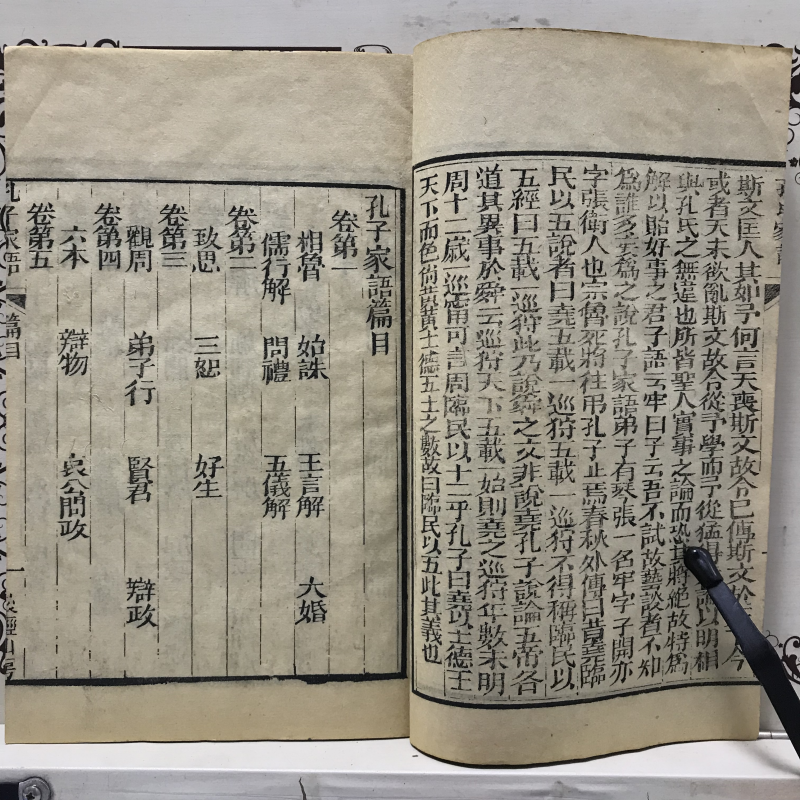 斯文匡人其如予何言天喪斯文故令己傳斯文於
或者天未欲亂斯文故令從予學而予從猛得 論以明相
與孔氏之無違也斯皆聖人實事之論而恐其將絕故特爲
解以貽好事之君子語云牢曰子云吾不試故藝談者不知
爲誰多妄爲之說孔子家語弟子有琴張一名牢字子開亦
字張衛人也宗魯死將往弔孔子止焉春秋外傳曰昔堯臨
民以五說者曰堯五載一巡狩五載一巡狩不得稱臨民以
五經曰五載一巡狩此乃說舜之文非說堯孔子說論五帝各
道其異事於舜云巡狩天下五載一始則堯之巡狩年數未明
周十二歲一巡甯可言周臨民以十二乎孔子曰堯以土德王
天下而色尚黃黃土德五土之數故曰臨民以五此其義也
孔子家語篇目
卷第一
相魯 始誅 王言解 大婚
儒行解 問禮 五儀解
卷第二
致思 三恕 好生
卷第三
觀周 弟子行 賢君 辯政
卷第四
六本 辯物 哀公問政
卷第五
孔子家語 篇目 一